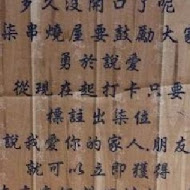 多久沒開口了呢
柒串燒屋要鼓勵大家
勇於說愛
從現在起打卡只要
標註出柒位
說我愛你的家人.朋友
就可以立即獲得